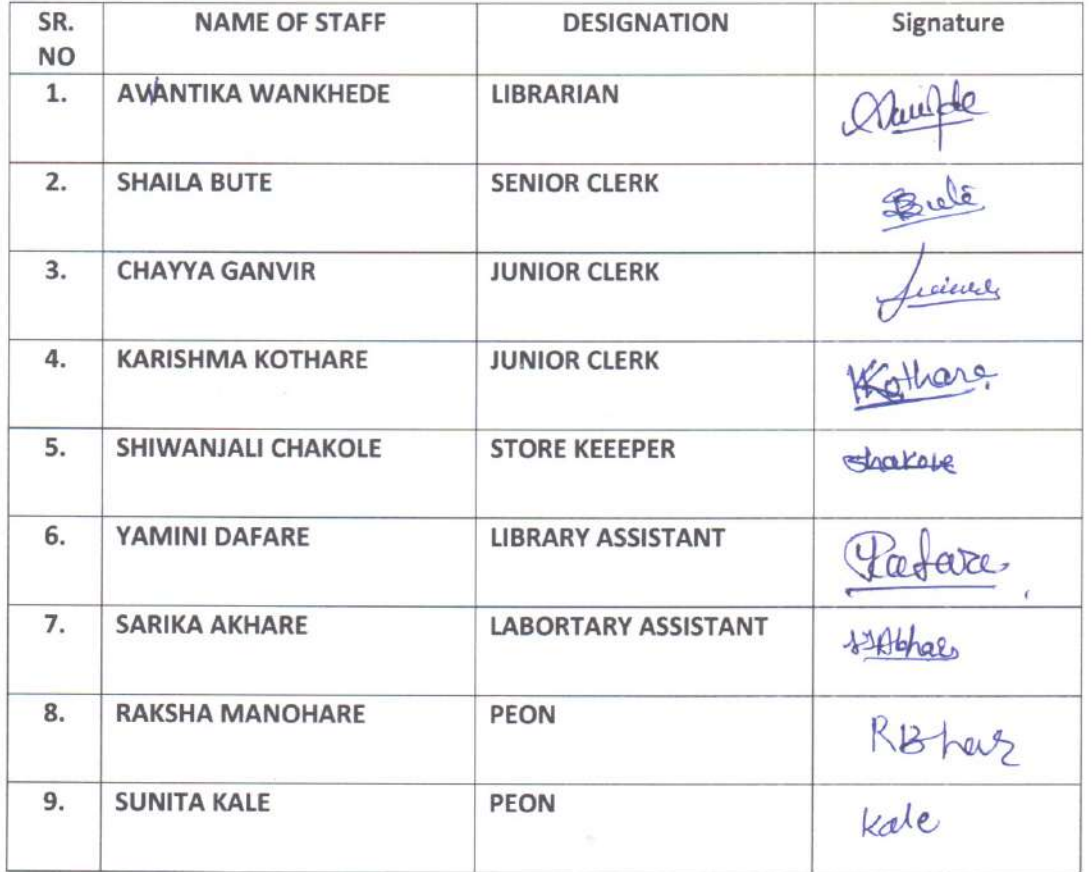 SR. NO NAME OF STAFF DESIGNATION Signature
1. AVANTIKA WANKHEDE LIBRARIAN
2. SHAILA BUTE SENIOR CLERK Bute
3. CHAYYA GANVIR JUNIOR CLERK
4. KARISHMA KOTHARE JUNIOR CLERK KKothare
5. SHIWANJALI CHAKOLE STORE KEEEPER
6. YAMINI DAFARE LIBRARY ASSISTANT
7. SARIKA AKHARE LABORTARY ASSISTANT
8. RAKSHA MANOHARE PEON
9. SUNITA KALE PEON kale